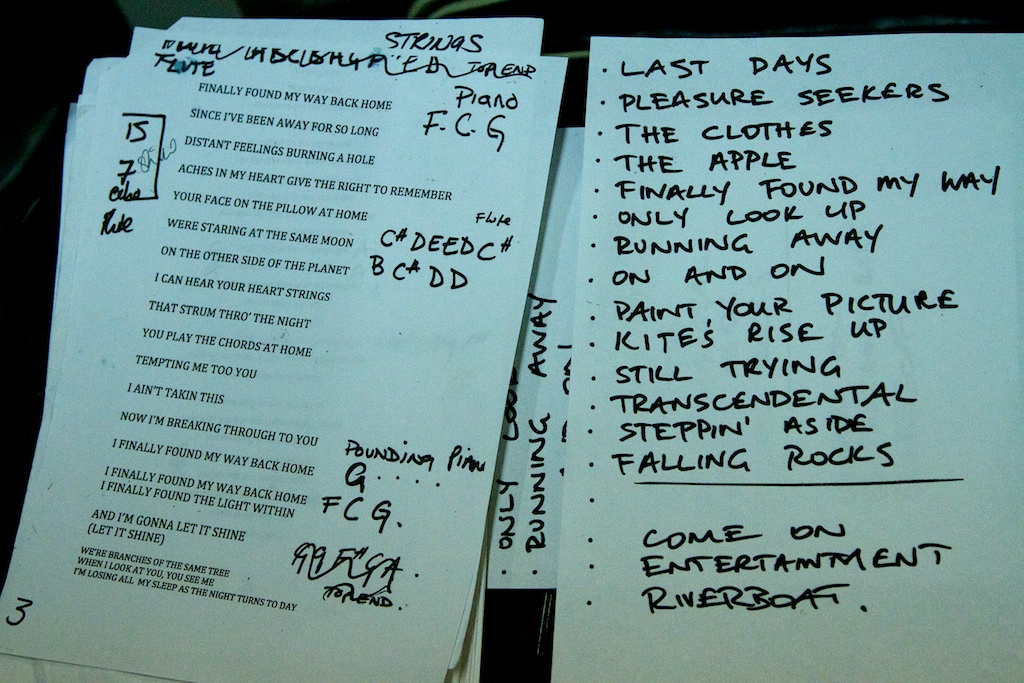 STRINGS
FLUTE
TOP END
Piano
F. C. G
15
7
Flute
FINALLY FOUND MY WAY BACK HOME
SINCE I'VE BEEN AWAY FOR SO LONG
DISTANT FEELINGS BURNING A HOLE
ACHES IN MY HEART GIVE THE RIGHT TO REMEMBER
YOUR FACE ON THE PILLOW AT HOME
WERE STARING AT THE SAME MOON
ON THE OTHER SIDE OF THE PLANET
Flute
C# DEEDC#
B C# DD
I CAN HEAR YOUR HEART STRINGS
THAT STRUM THRO' THE NIGHT
YOU PLAY THE CHORDS AT HOME
TEMPTING ME TOO YOU
I AIN'T TAKIN THIS
NOW I'M BREAKING THROUGH TO YOU
I FINALLY FOUND MY WAY BACK HOME
I FINALLY FOUND MY WAY BACK HOME
I FINALLY FOUND THE LIGHT WITHIN
POUNDING Piano
G.....
F C G.
AND I'M GONNA LET IT SHINE
(LET IT SHINE)
WE'RE BRANCHES OF THE SAME TREE
WHEN I LOOK AT YOU, YOU SEE ME
I'M LOSING ALL MY SLEEP AS THE NIGHT TURNS TO DAY
TOP END.
3
· ONLY LOOK
· RUNNING AWAY
· LAST DAYS
· PLEASURE SEEKERS
· THE CLOTHES
· THE APPLE
· FINALLY FOUND MY WAY
· ONLY LOOK UP
· RUNNING AWAY
· ON AND ON
· PAINT YOUR PICTURE
· KITE'S RISE UP
· STILL TRYING
· TRANSCENDENTAL
· STEPPIN' ASIDE
· FALLING ROCKS
·
· COME ON
· ENTERTAINTMENT
· RIVERBOAT.